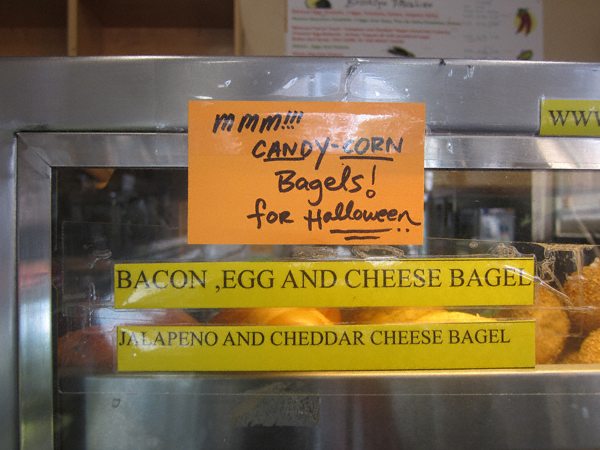 mmm!!!
CANDY-CORN
Bagels!
for Halloween
WWW
BACON ,EGG AND CHEESE BAGEL
JALAPENO AND CHEDDAR CHEESE BAGEL